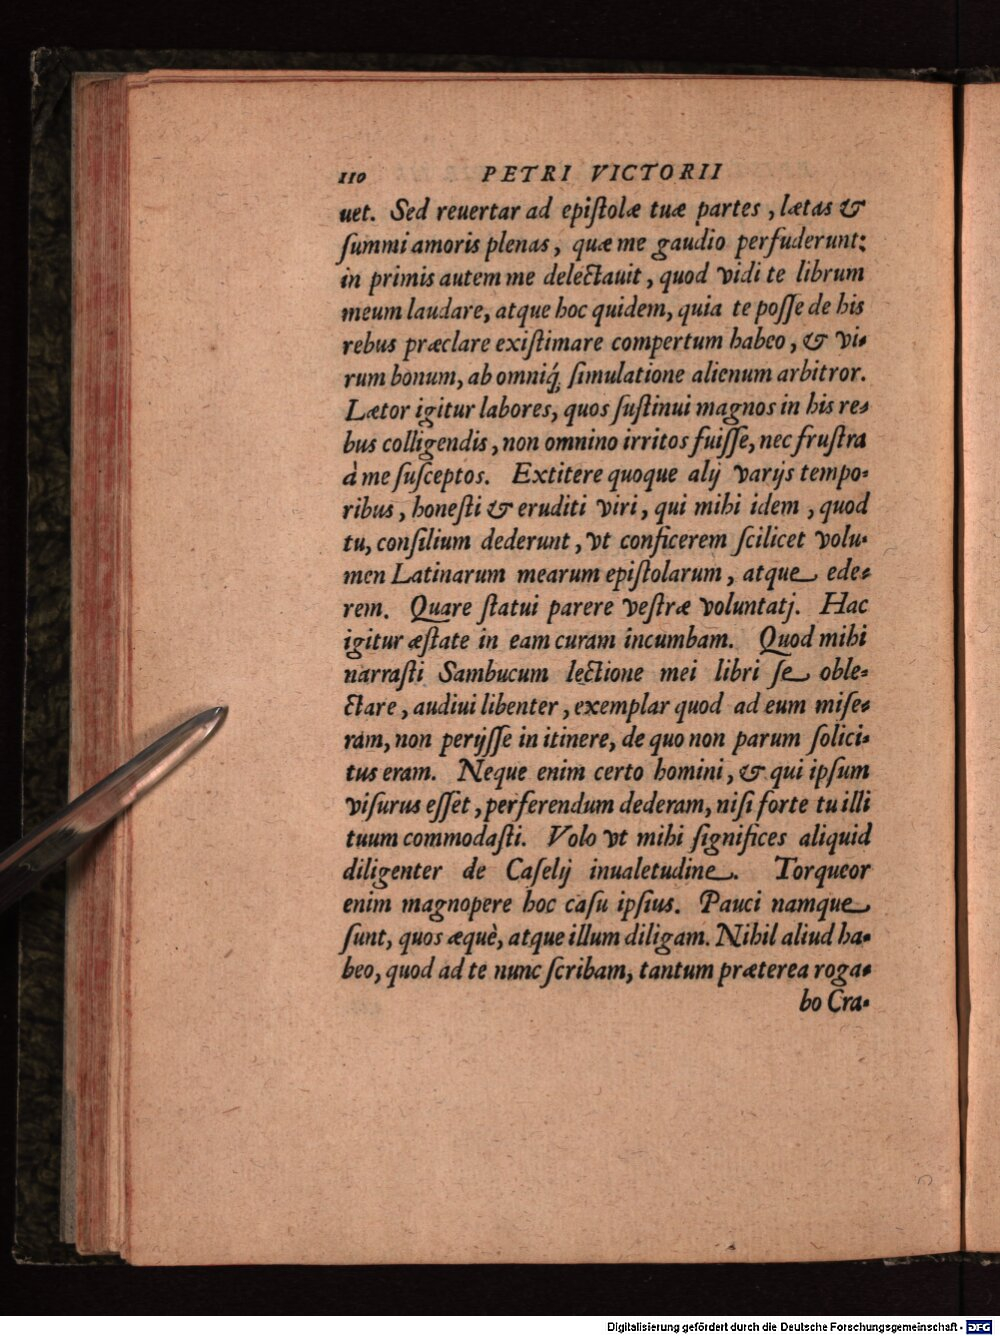 110 PETRI VICTORII
uet. Sed reuertar ad epiſtolæ tuæ partes, lætas &
ſummi amoris plenas, quæ me gaudio perfuderunt:
in primis autem me delectauit, quod vidi te librum
meum laudare, atque hoc quidem, quia te poſſe de his
rebus præclare exiſtimare compertum habeo, & vi-
rum bonum, ab omniq́; ſimulatione alienum arbitror.
Lætor igitur labores, quos ſuſtinui magnos in his re-
bus colligendis, non omnino irritos fuiſſe, nec fruſtra
à me ſuſceptos. Extitere quoque alij varijs tempo-
ribus, honeſti & eruditi viri, qui mihi idem, quod
tu, conſilium dederunt, vt conficerem ſcilicet volu-
men Latinarum mearum epiſtolarum, atque ede-
rem. Quare ſtatui parere veſtræ voluntatj. Hac
igitur æſtate in eam curam incumbam. Quod mihi
narraſti Sambucum lectione mei libri ſe oble-
ctare, audiui libenter, exemplar quod ad eum miſe-
ram, non perijſſe in itinere, de quo non parum ſolici-
tus eram. Neque enim certo homini, & qui ipſum
viſurus eſſet, perferendum dederam, niſi forte tu illi
tuum commodaſti. Volo vt mihi ſignifices aliquid
diligenter de Caſelij inualetudine. Torqueor
enim magnopere hoc caſu ipſius. Pauci namque
ſunt, quos æquè, atque illum diligam. Nihil aliud ha-
beo, quod ad te nunc ſcribam, tantum præterea roga-
bo Cra-
Digitalisierung gefördert durch die Deutsche Forschungsgemeinschaft - DFG